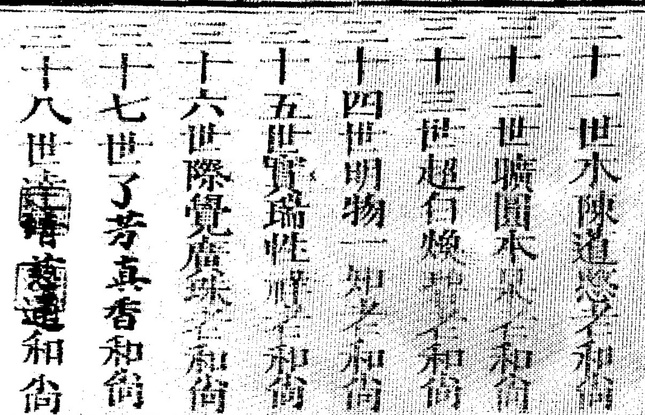 三十一世木陳道忞老和尚
三十二世曠圓本杲老和尚
三十三世超白煥老和尚
三十四世明物一知老和尚
三十五世實瑞性祥老和尚
三十六世際覺廣珠老和尚
三十七世了芳真香和尚
三十八世達和尚